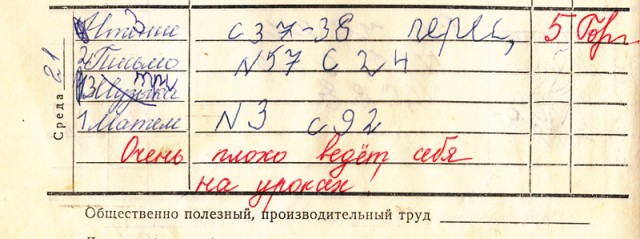 Среда 21
4 Чтение с 37-38 перес, 5 Горг
2 Письмо N57 с 24
3 Музыка
1 Матем N3 с 92
Очень плохо ведёт себя
на уроках
Общественно полезный, производительный труд